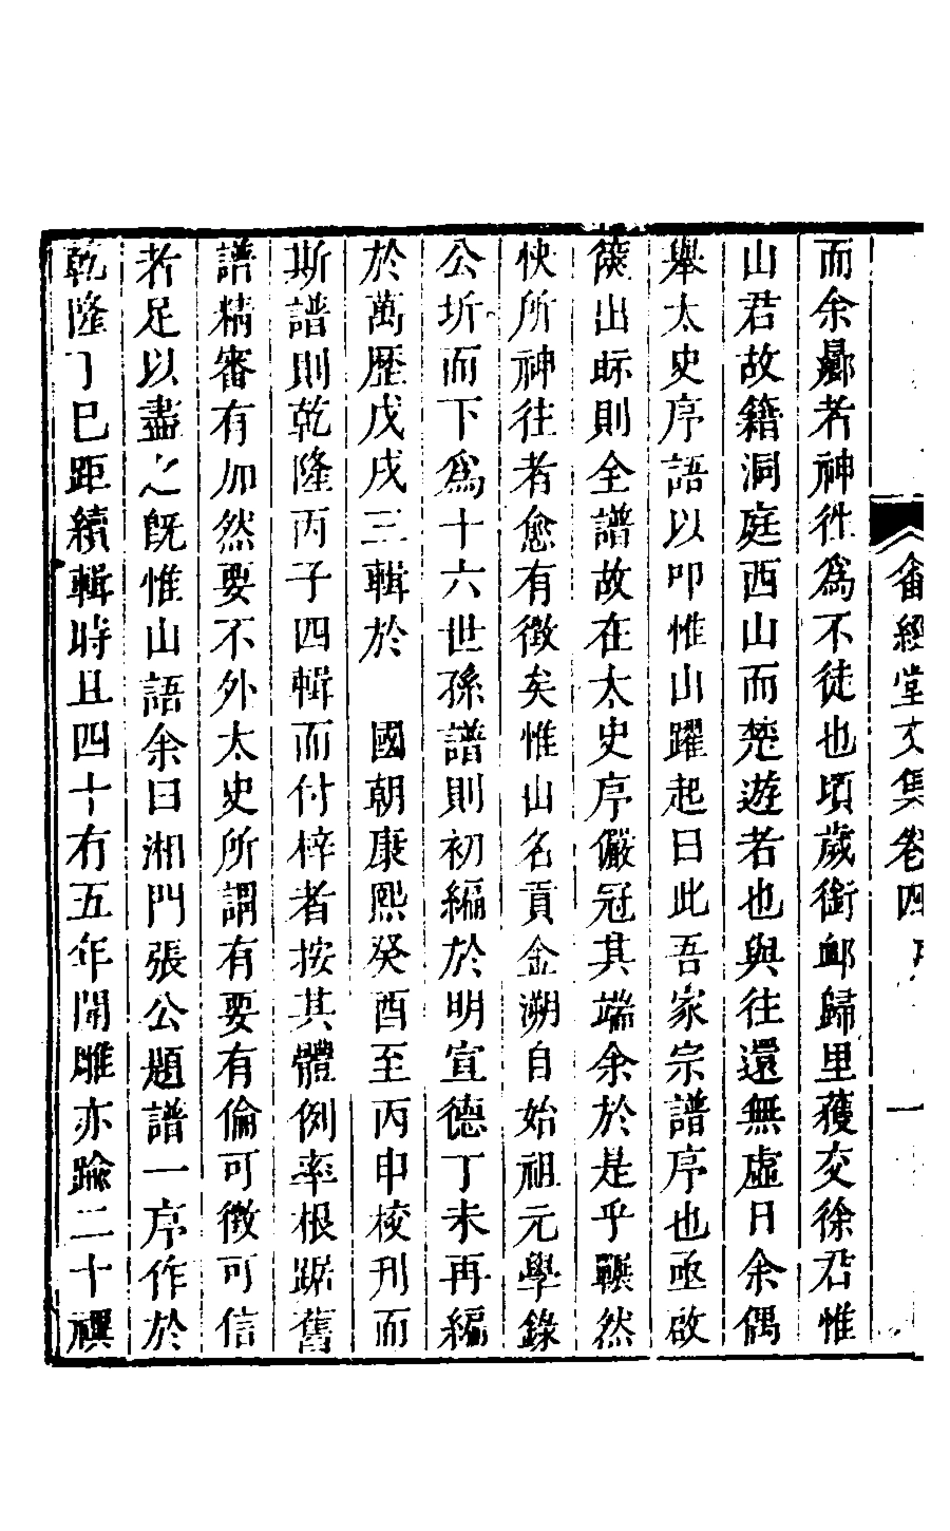 畬經堂文集卷四 一
而余曏者神徃爲不徒也頃歲銜䘏歸里獲交徐君惟
山君故籍洞庭西山而楚遊者也與往還無虛日余偶
舉太史序語以叩惟山躍起曰此吾家宗譜序也亟啟
篋出眎則全譜故在太史序儼冠其端余於是乎囅然
快所神往者愈有徵矣惟山名貢金溯自始祖元學錄
公圻而下爲十六世孫譜則初編於明宣德丁未再編
於萬歷戊戌三輯於 國朝康熙癸酉至丙申校刋而
斯譜則乾隆丙子四輯而付梓者按其體例率根踞舊
譜精審有加然要不外太史所謂有要有倫可徵可信
者足以盡之旣惟山語余曰湘門張公題譜一序作於
乾隆丁巳距續輯時且四十有五年開雕亦踰二十禩